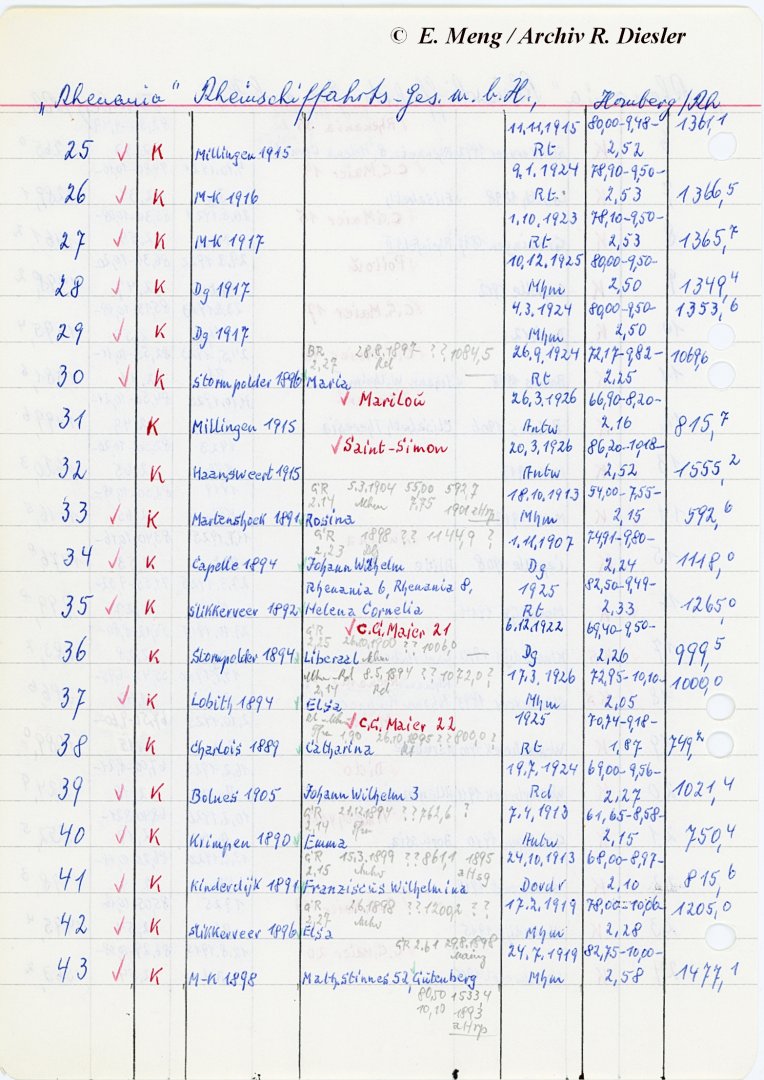 © E. Meng / Archiv R. Diesler
„Rhenania“ Rheinschiffahrts-Ges. m. b. H., Homberg/Rh
11.11.1915 80,00-9,48- 1361,1
25 ✓ K Millingen 1915 Rt 2,52
9.1.1924 78,90-9,50-
26 ✓ K M-K 1916 Rt. 2,53 1366,5
1.10.1923 78,10-9,50-
27 ✓ K M-K 1917 Rt 2,53 1365,7
10.12.1925 80,00-9,50-
28 ✓ K Dg 1917 Mhm 2,50 1349,4
4.3.1924 80,00-9,50- 1353,6
29 ✓ K Dg 1917 Mhm 2,50
BR 28.8.1897 ?? 1084,5 26.9.1924 72,17-9,82- 1069,6
2,27 Rd
30 ✓ K Stormpolder 1896 Maria Rt 2,25
✓ Marilou 26.3.1926 66,90-8,20-
31 K Millingen 1915 Antw 2,16 815,7
✓ Saint-Simon 20.3.1926 86,20-10,18-
32 K Haansweert 1915 Antw 2,52 1555,2
GR 5.3.1904 55,00 592,7 18.10.1913 54,00-7,55-
2,14 Mhm 7,75 1901 aHrp
33 ✓ K Martenshoek 1891 Rosina Mhm 2,15 592,6
GR 1898 ?? 1144,9 ? 1.11.1907 74,91-9,80-
2,23 Dg
34 ✓ K Capelle 1894 Johann Wilhelm Dg 2,24 1118,0
Rhenania 6, Rhenania 8, 1925 82,50-9,49-
35 ✓ K Slikkerveer 1892 Helena Cornelia Rt 2,33 1265,0
✓ C.G. Maier 21 6.12.1922 69,40-9,50-
GR 26.10.1900 ?? 1006,0
2,25
36 K Stormpolder 1894 Liberaal Mhm Dg 2,26 999,5
Mhm-Rd 8.5.1894 ?? 1072,0 ? 17.3.1926 72,95-10,10-
2,14 Rd
37 ✓ K Lobith 1894 Elsa Mhm 2,05 1000,0
✓ C.G. Maier 22 1925 70,74-9,18-
1,90 26.10.1895 ?? 800,0 ?
38 K Charlois 1889 Catharina Rt Rt 1,87 749,2
19.7.1924 69,00-9,56-
39 ✓ K Bolnes 1905 Johann Wilhelm 3 Rd 2,27 1021,4
GR 21.12.1894 ?? 762,6 ? 7.4.1913 61,65-8,58-
2,14
40 ✓ K Krimpen 1890 Emma Antw 2,15 750,4
GR 15.3.1899 ?? 861,1 1895 24.10.1913 68,00-8,97-
2,15 aHsg
41 ✓ K Kinderdijk 1891 Franziscus Wilhelmina Dordr 2,10 815,6
GR 2.6.1898 ?? 1200,2 ?? 17.2.1919 78,00-10,06-
2,27
42 ✓ K Slikkerveer 1896 Elsa Mhm 2,28 1205,0
GR 2,61 29.8.1898 24.7.1919 82,75-10,00-
Mainz
43 ✓ K M-K 1898 Math. Stinnes 52, Gutenberg Mhm 2,58 1477,1
80,50 1533,4
10,10 1893
aHrp